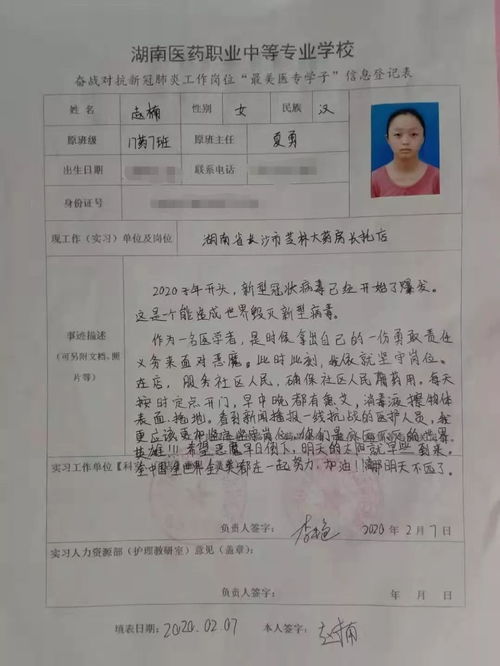 湖南医药职业中等专业学校
奋战对抗新冠肺炎工作岗位“最美医专学子”信息登记表
姓名 赵楠 性别 女 民族 汉
原班级 17药7班 原班主任 夏勇
出生日期 联系电话
身份证号
现工作（实习）单位及岗位 湖南省长沙市芝林大药房长托店
事迹描述
（可另附文档、照
片等）
2020年开头，新型冠状病毒已经开始了爆发。
这是个能造成世界毁灭新型病毒。
作为一名医学者，是时候拿出自己的一份勇敢责任
义务来面对恶魔。此时此刻，我依就坚守岗位。
在店，服务社区人民，确保社区人民用药，每天
按时定点开门，早中晚都有熏艾，消毒液擦物体
表面，拖地，看到新闻播报一线抗战的医护人员，我
更应该更加坚定坚守岗位，你们是
英雄!!! 希望恶魔早日倒下，明天的太阳就早些到来，
全中国全世界全人类都在一起努力，加油！那明天不远了。
实习工作单位【科
负责人签字： 李艳 2020年2月7日
实习人力资源部（护理教研室）意见（盖章）：
负责人签字： 年 月 日
填表日期：2020.02.07 本人签字： 赵楠